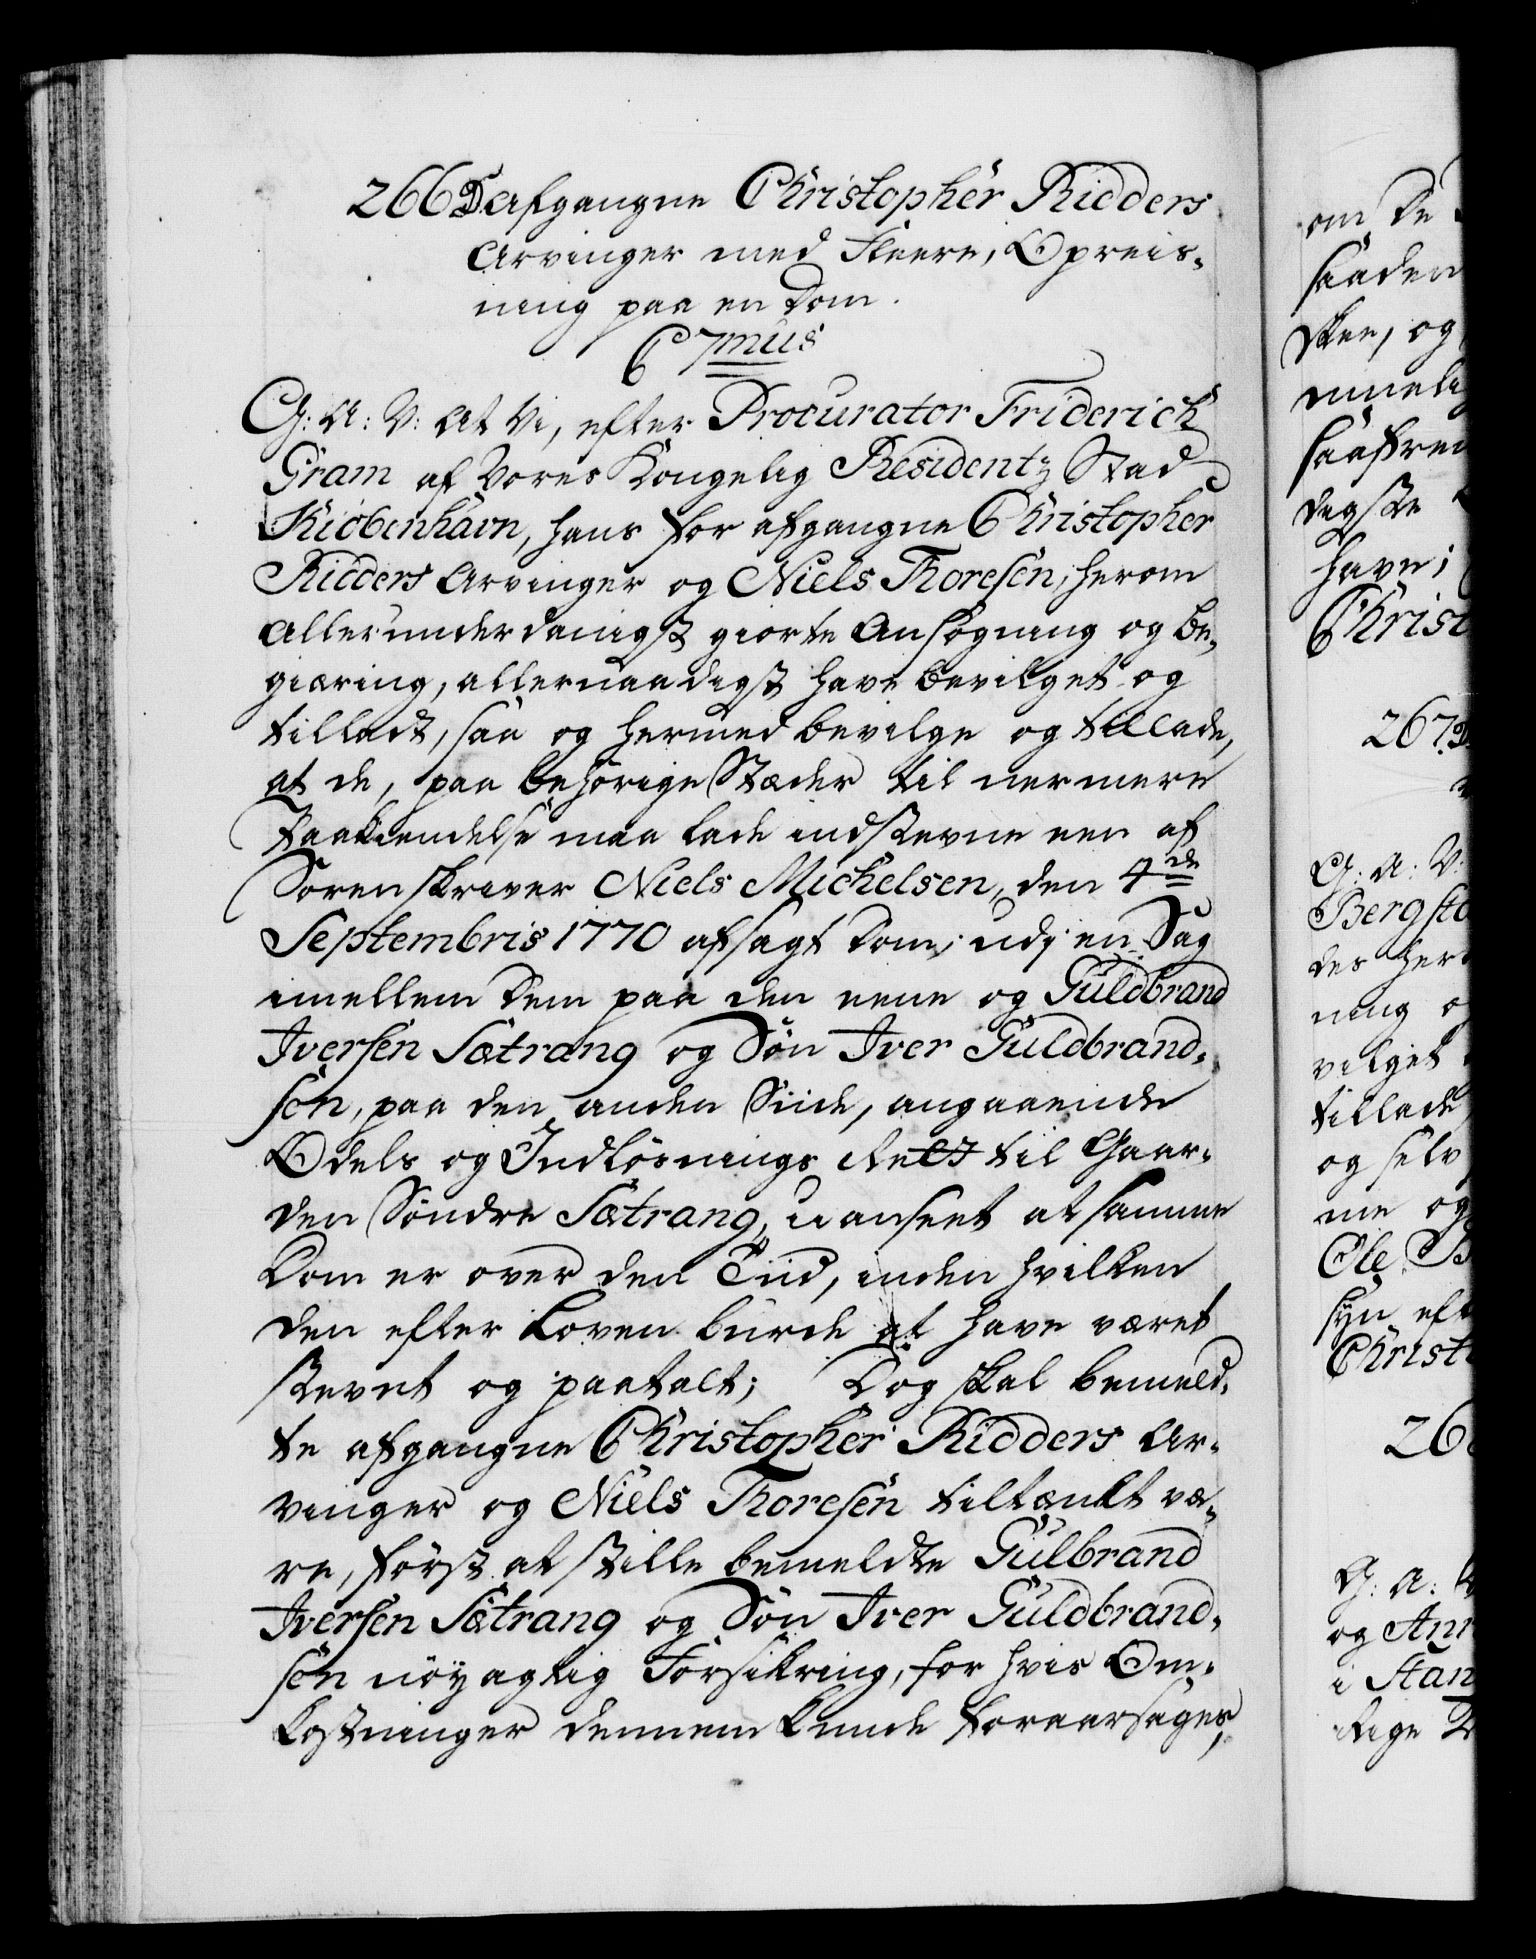 266 Afgangne Christopher Ridders
Arvinger med Fleere, Opreis-
ning paa en Dom.
C 7mus
G: A: V: At Vi, efter Procurator Friderich
Gram af Vores Kongelig Residentz Stad
Kiöbenhavn, hans for afgangne Christopher
Ridders Arvinger og Niels Thoresen, herom
allerunderdanigst giorte Ansögning og be-
giæring, allernaadigst have bevilget og
tilladt, saa og hermed bevilge og tillade,
at de, paa behörige Stæder til nermere
Paakiendelse maa lade indstevne een af
Sorenskriver Niels Michelsen, den 4de
Septembris 1770 afsagt Dom, udj en Sag
imellem dem paa den eene og Guldbrand
Iversen Sætrang og Sön Iver Guldbrand-
sön, paa den anden Siide, angaaende
Odels og Indlösnings Rett til Gaar-
den Söndre Sætrang, uanseet at samme
Dom er over den Tiid, inden hvilken
den efter Loven burde at have været
stevnt og paatalt; Dog skal bemeld-
te afgangne Christopher Ridders Ar-
vinger og Niels Thoresen tiltænkt væ-
re, först at stille bemeldte Gulbrand
Iversen Sætrang og Sön Iver Guldbrand-
sön nöyagtig Forsikring, for hvis Om-
kostninger dennem kunde foraarsages,
om de
saaden
skee, og
havn;
Christ
267.
G: A: V:
Bergsto
des her
ning o
vilget
tillade
og selv
me og
Ole B
syn eft
Christ
26
G: A:
og Ann
i Stan